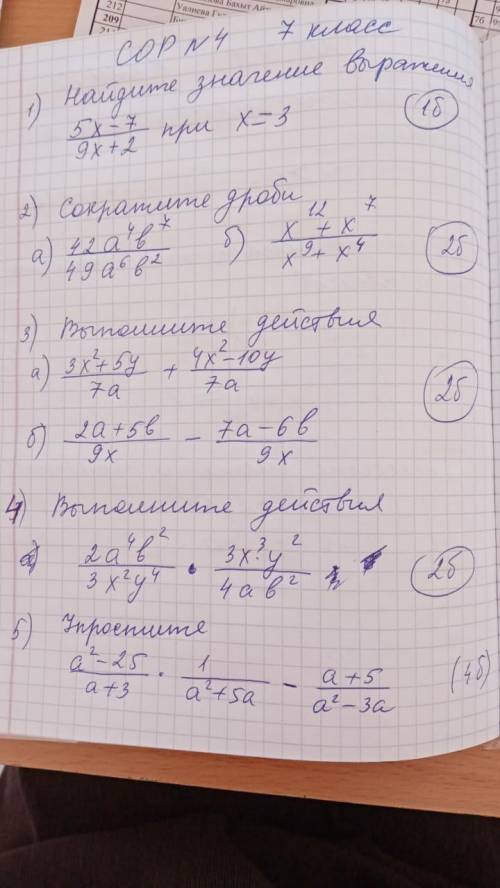 212
209
Уалиева
Бахыт
76
СОР N4 7 класс
1) Найдите значение выражения
(5x-7)/(9x+2) при x=3 1б
2) Сократите дроби
а) 42a⁴b⁷/49a⁶b² б) (x¹²+x⁷)/(x⁹+x⁴) 2б
3) Выполните действия
а) (3x²+5y)/7a + (4x²-10y)/7a 2б
б) (2a+5b)/9x - (7a-6b)/9x
4) Выполните действия
2a⁴b²/3x²y⁴ · 3x³y²/4ab² 2б
5) Упростите
(a²-25)/(a+3) · 1/(a²+5a) - (a+5)/(a²-3a) (4б)